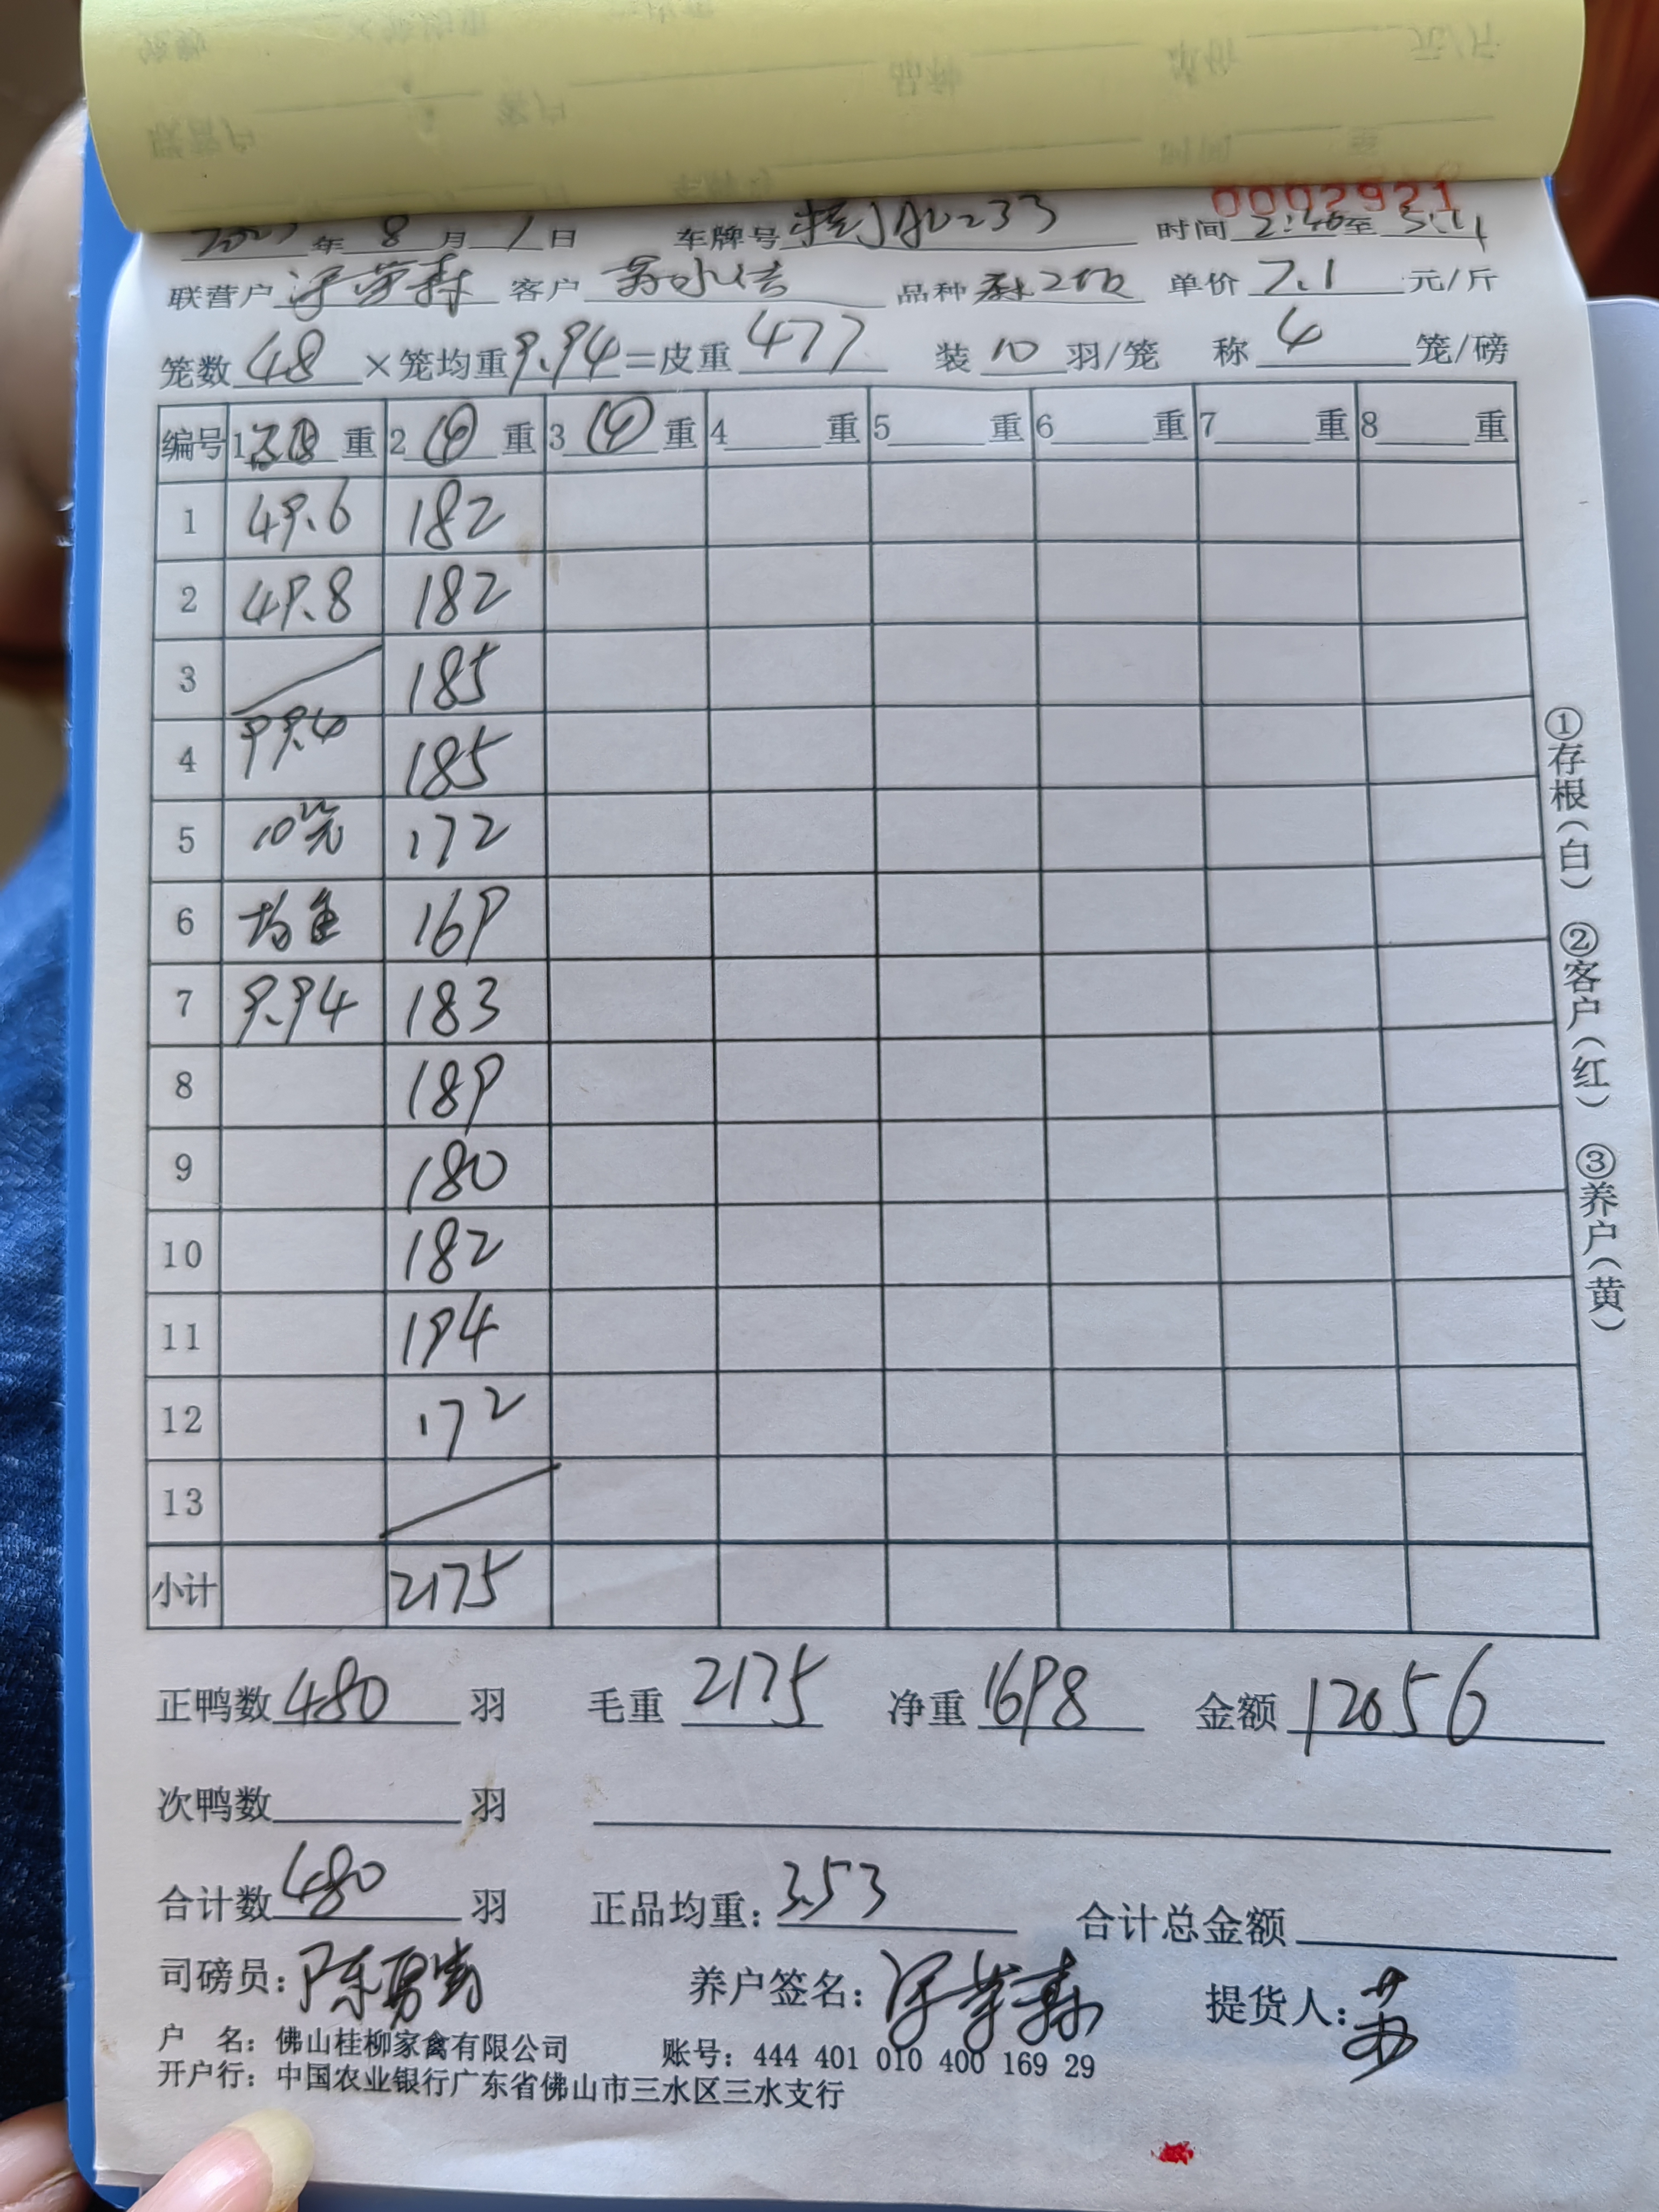 0002921
年 8 月 1 日 车牌号 时间 2:40 至
联营户 客户 品种 单价 7.1 元/斤
笼数 48 ×笼均重 9.94 =皮重 477 装 10 羽/笼 称 4 笼/磅
编号 1 重 2 ④ 重 3 ④ 重 4 重 5 重 6 重 7 重 8 重
1 49.6 182
2 49.8 182
3 185
4 99.4 185
5 10笼 172
6 均重 169
7 9.94 183
8 189
9 180
10 182
11 194
12 172
13
小计 2175
正鸭数 480 羽 毛重 2175 净重 1698 金额 12056
次鸭数 羽
合计数 480 羽 正品均重: 3.53 合计总金额
司磅员: 养户签名: 提货人: 苏
户 名: 佛山桂柳家禽有限公司 账号: 444 401 010 400 169 29
开户行: 中国农业银行广东省佛山市三水区三水支行
①存根(白) ②客户(红) ③养户(黄)